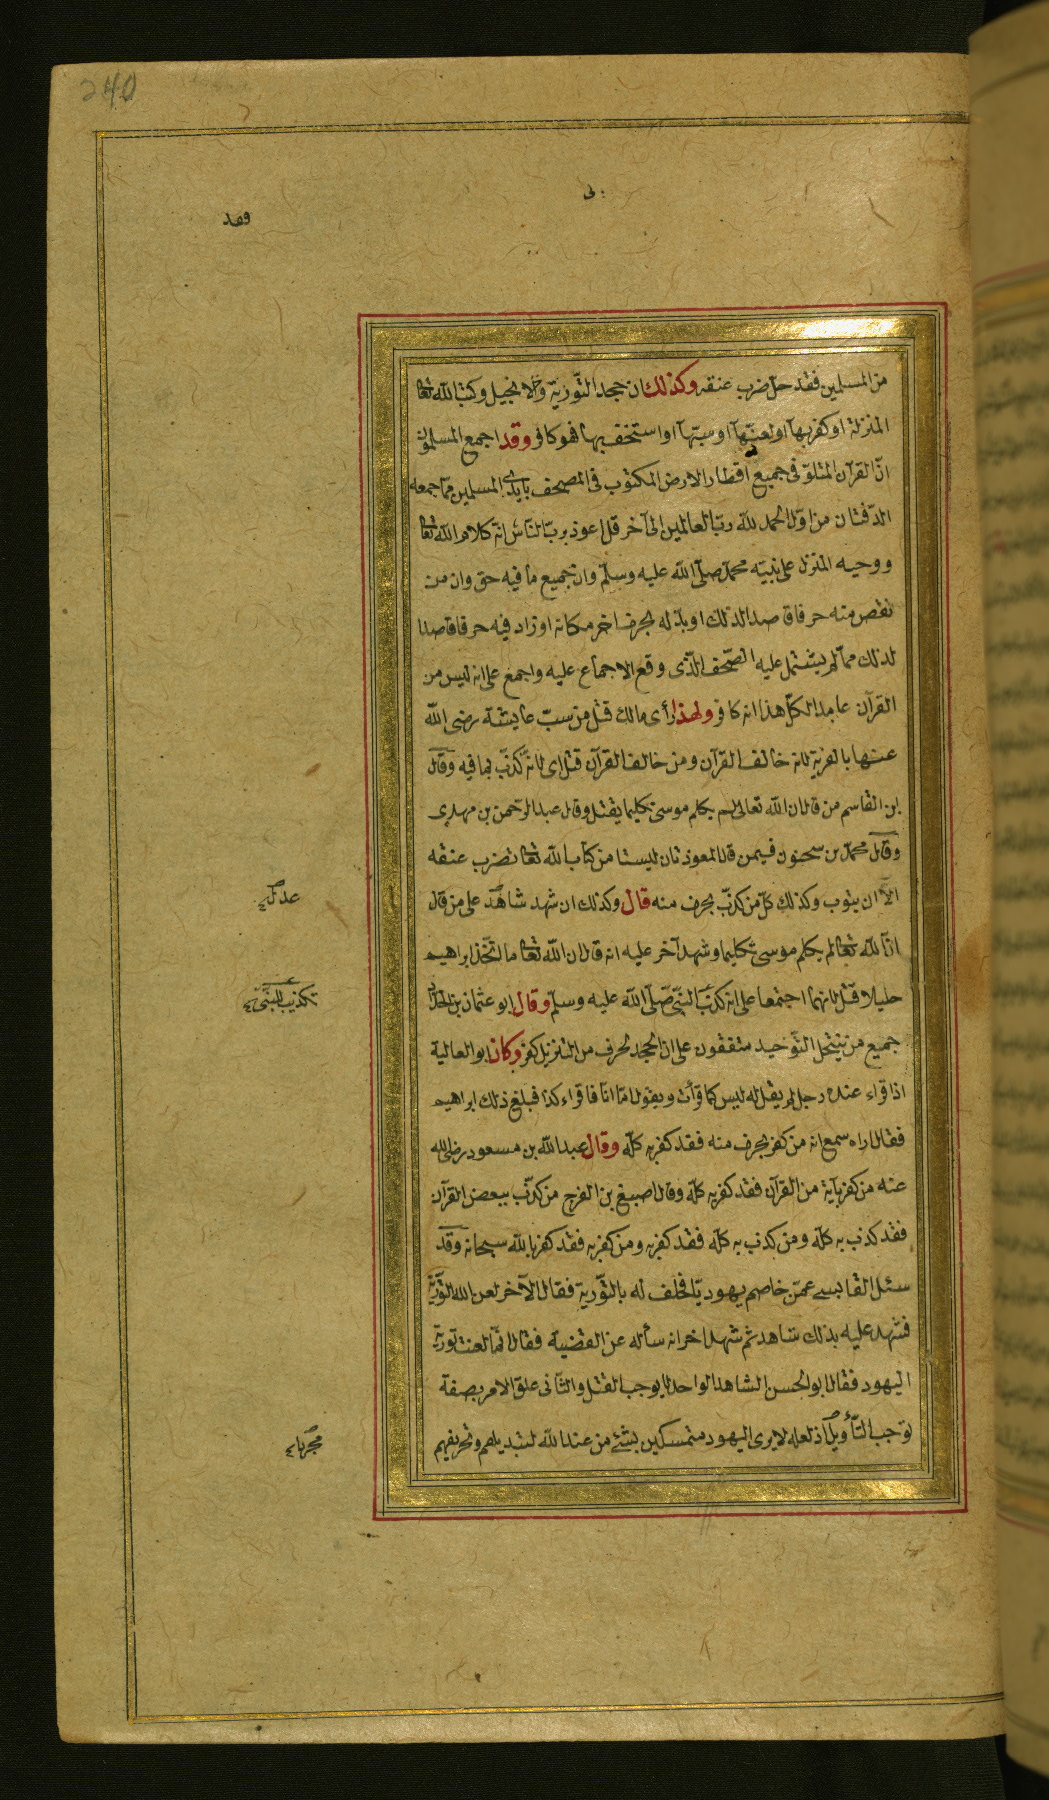 240
وقد
من المسلمين فقد حل ضرب عنقه وكذلك ان جحد التّورية والانجيل وكتب الله تعا
المنزلة او كفر بها او لعنها او سبّها او استخف بها فهو كافر وقد اجمع المسلمون
انّ القرآن المتلوّ فى جميع اقطار الارض المكتوب فى المصحف بايدى المسلمين ممّا جمعه
الدّفتان من اوّل الحمد للّه ربّ العالمين الى آخر قل اعوذ بربّ النّاس انّه كلام اللّه تعا
ووحيه المنزل على نبيّه محمّد صلّى اللّه عليه وسلّم وان جميع ما فيه حق وان من
نقص منه حرفا قاصدا لذلك او بدّله بحرف اخر مكانه او زاد فيه حرفا قاصدا
لذلك ممّا لم يشتمل عليه المصحف الّذى وقع الاجماع عليه واجمع على انه ليس من
القرآن عامدا لكلّ هذا انه كافر ولهذا رأى مالك قتل من سبّ عايشة رضى اللّه
عنها بالفرية لانه خالف القرآن ومن خالف القرآن قتل اى لانّه كذّب بما فيه وقال
ابن القاسم من قال ان اللّه تعالى لم يكلم موسى تكليما يقتل وقال عبد الرّحمن بن مهدى
وقال محمّد بن سحنون فيمن قال المعوذتان ليستا من كتاب اللّه تعا يضرب عنقه
الّا ان يتوب وكذلك كلّ من كذّب بحرف منه قال وكذلك ان شهد شاهد على من قال
انّ اللّه تعا لم يكلم موسى تكليما وشهد آخر عليه انه قال ان اللّه تعا ما اتّخذ ابراهيم
خليلا قتل لانهما اجتمعا على انه كذّب النّبىّ صلّى اللّه عليه وسلّم وقال ابو عثمان بن الحدّاد
جميع من ينتحل التّوحيد متفقون على ان الجحد لحرف من التنزيل كفر وكان ابو العالية
اذا قراء عنده رجل لم يقل له ليس كما قرأت ويقول امّا انا فاقراء كذا فبلغ ذلك ابراهيم
فقال اراه سمع انه من كفر بحرف منه فقد كفر به كلّه وقال عبد اللّه بن مسعود رضى اللّه
عنه من كفر بآية من القرآن فقد كفر به كلّه وقال اصبغ بن الفرج من كذّب ببعض القرآن
فقد كذب به كلّه ومن كذب به كلّه فقد كفر به ومن كفر به فقد كفر باللّه سبحانه وقد
سئل القابسى عمّن خاصم يهوديّا فحلف له بالتّورية فقال الآخر لعن اللّه التّورية
فشهد عليه بذلك شاهد ثم شهد اخر انه سأله عن القضية فقال انّما لعنت تورية
اليهود فقال ابو الحسن الشاهد الواحد لا يوجب القتل والثّانى علق الامر بصفة
توجب التأويل اذ لعله لا يرى اليهود متمسكين بشئ من عند اللّه لتبديلهم وتحريفهم